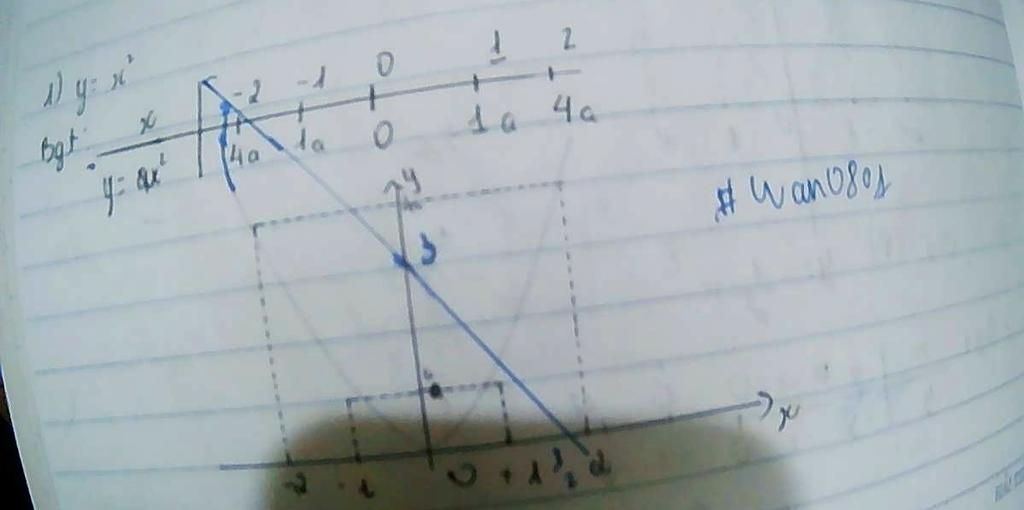 1) y = x²
Bgt:
x -2 -1 0 1 2
y = ax² 4a 1a 0 1a 4a
# Wan0801
y
3
x
-2 -1 0 +1 3/2 2